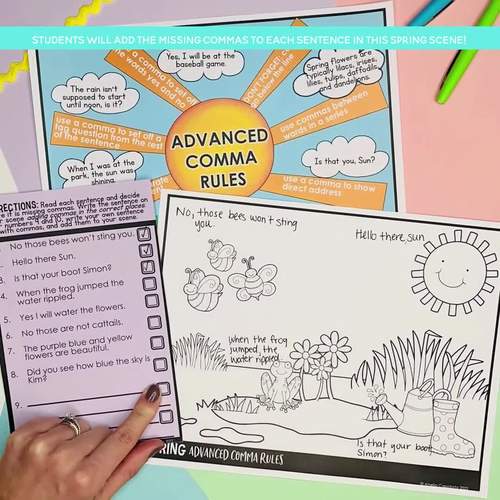 STUDENTS WILL ADD THE MISSING COMMAS TO EACH SENTENCE IN THIS SPRING SCENE!
Yes, I will be at the
baseball game.
a comma to set off
the words yes and no
DON'T FORGET
go below the line
Spring flowers are
typically lilacs, irises,
lilies, tulips, daffodils,
and dandelions.
The rain isn't
supposed to start
until noon, is it?
use a comma to set off a
tag question from the rest
of the sentence
use commas between
words in a series
ADVANCED
COMMA
RULES
When I was at the
park, the sun was
shining.
Is that you, Sun?
use a comma to show
direct address
DIRECTIONS: Read each sentence and decide
where it is missing commas. Write the sentence on
your scene adding commas in the correct places
For numbers 9 and 10, write your own sentence
with commas, and add them to your scene.
No those bees won't sting you.
Hello there Sun.
3. Is that your boot Simon?
4. When the frog jumped the
water rippled.
5. Yes I will water the flowers.
6. No those are not cattails.
7. The purple blue and yellow
flowers are beautiful.
8. Did you see how blue the sky is
Kim?
9.
No, those bees won't sting
you.
Hello there, sun.
When the frog
jumped, the
water rippled.
Is that your boot,
Simon?
SPRING ADVANCED COMMA RULES